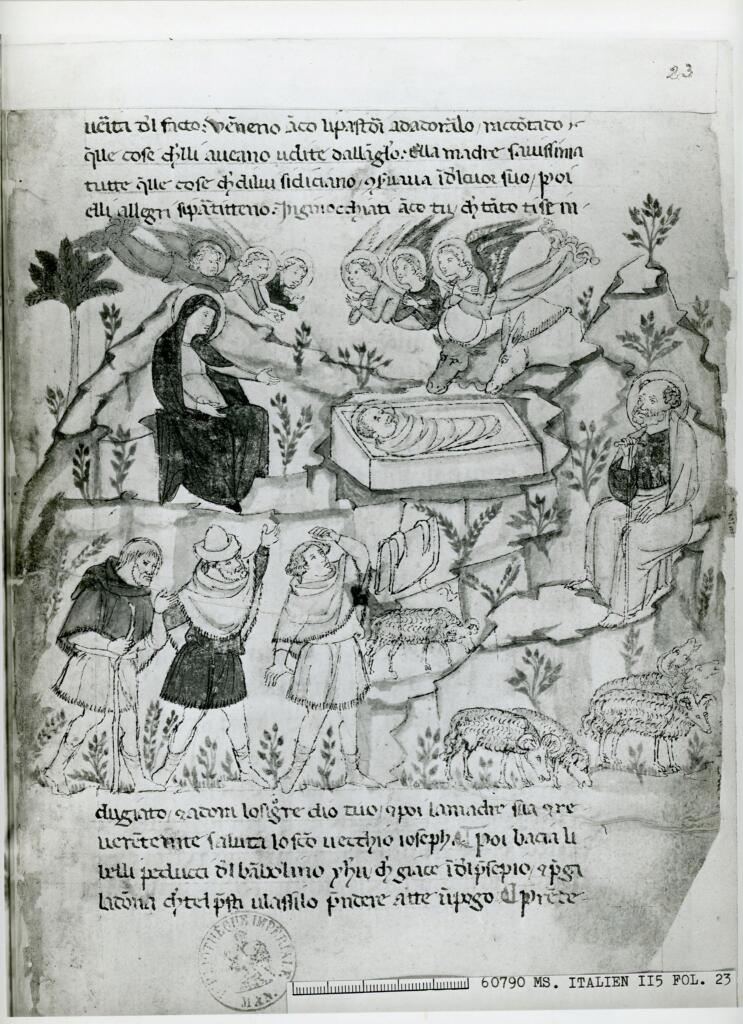 23
ucita del facto: Vẽnerio ãco li pastori ad adorarlo / raccõtado
q̃lle cose ch'elli aueano udite dall'ãglo: Ella madre sauissima
tutte q̃lle cose ch di lui si diciano, ↄseruaua ĩ del cuor suo / poi
elli allegri si partitteno. Inginocchiati ãco tu, ch tãto tise in
dugiato, ⁊ adora lo signore dio tuo, ⁊ poi la madre sua ⁊ re
uerẽtemẽte saluta lo sc̃o uecchio ioseph. Poi bacia li
belli peducci del bãbolino yh̃u, ch giace ĩ del p̃sepio, ⁊ p̃ga
la dõna ch tel p̃sti u lassilo p̃ndere a tte ti p̃ego Prẽde
BIBLIOTHÈQUE IMPÉRIALE
MAN.
60790 MS. ITALIEN 115 FOL. 23